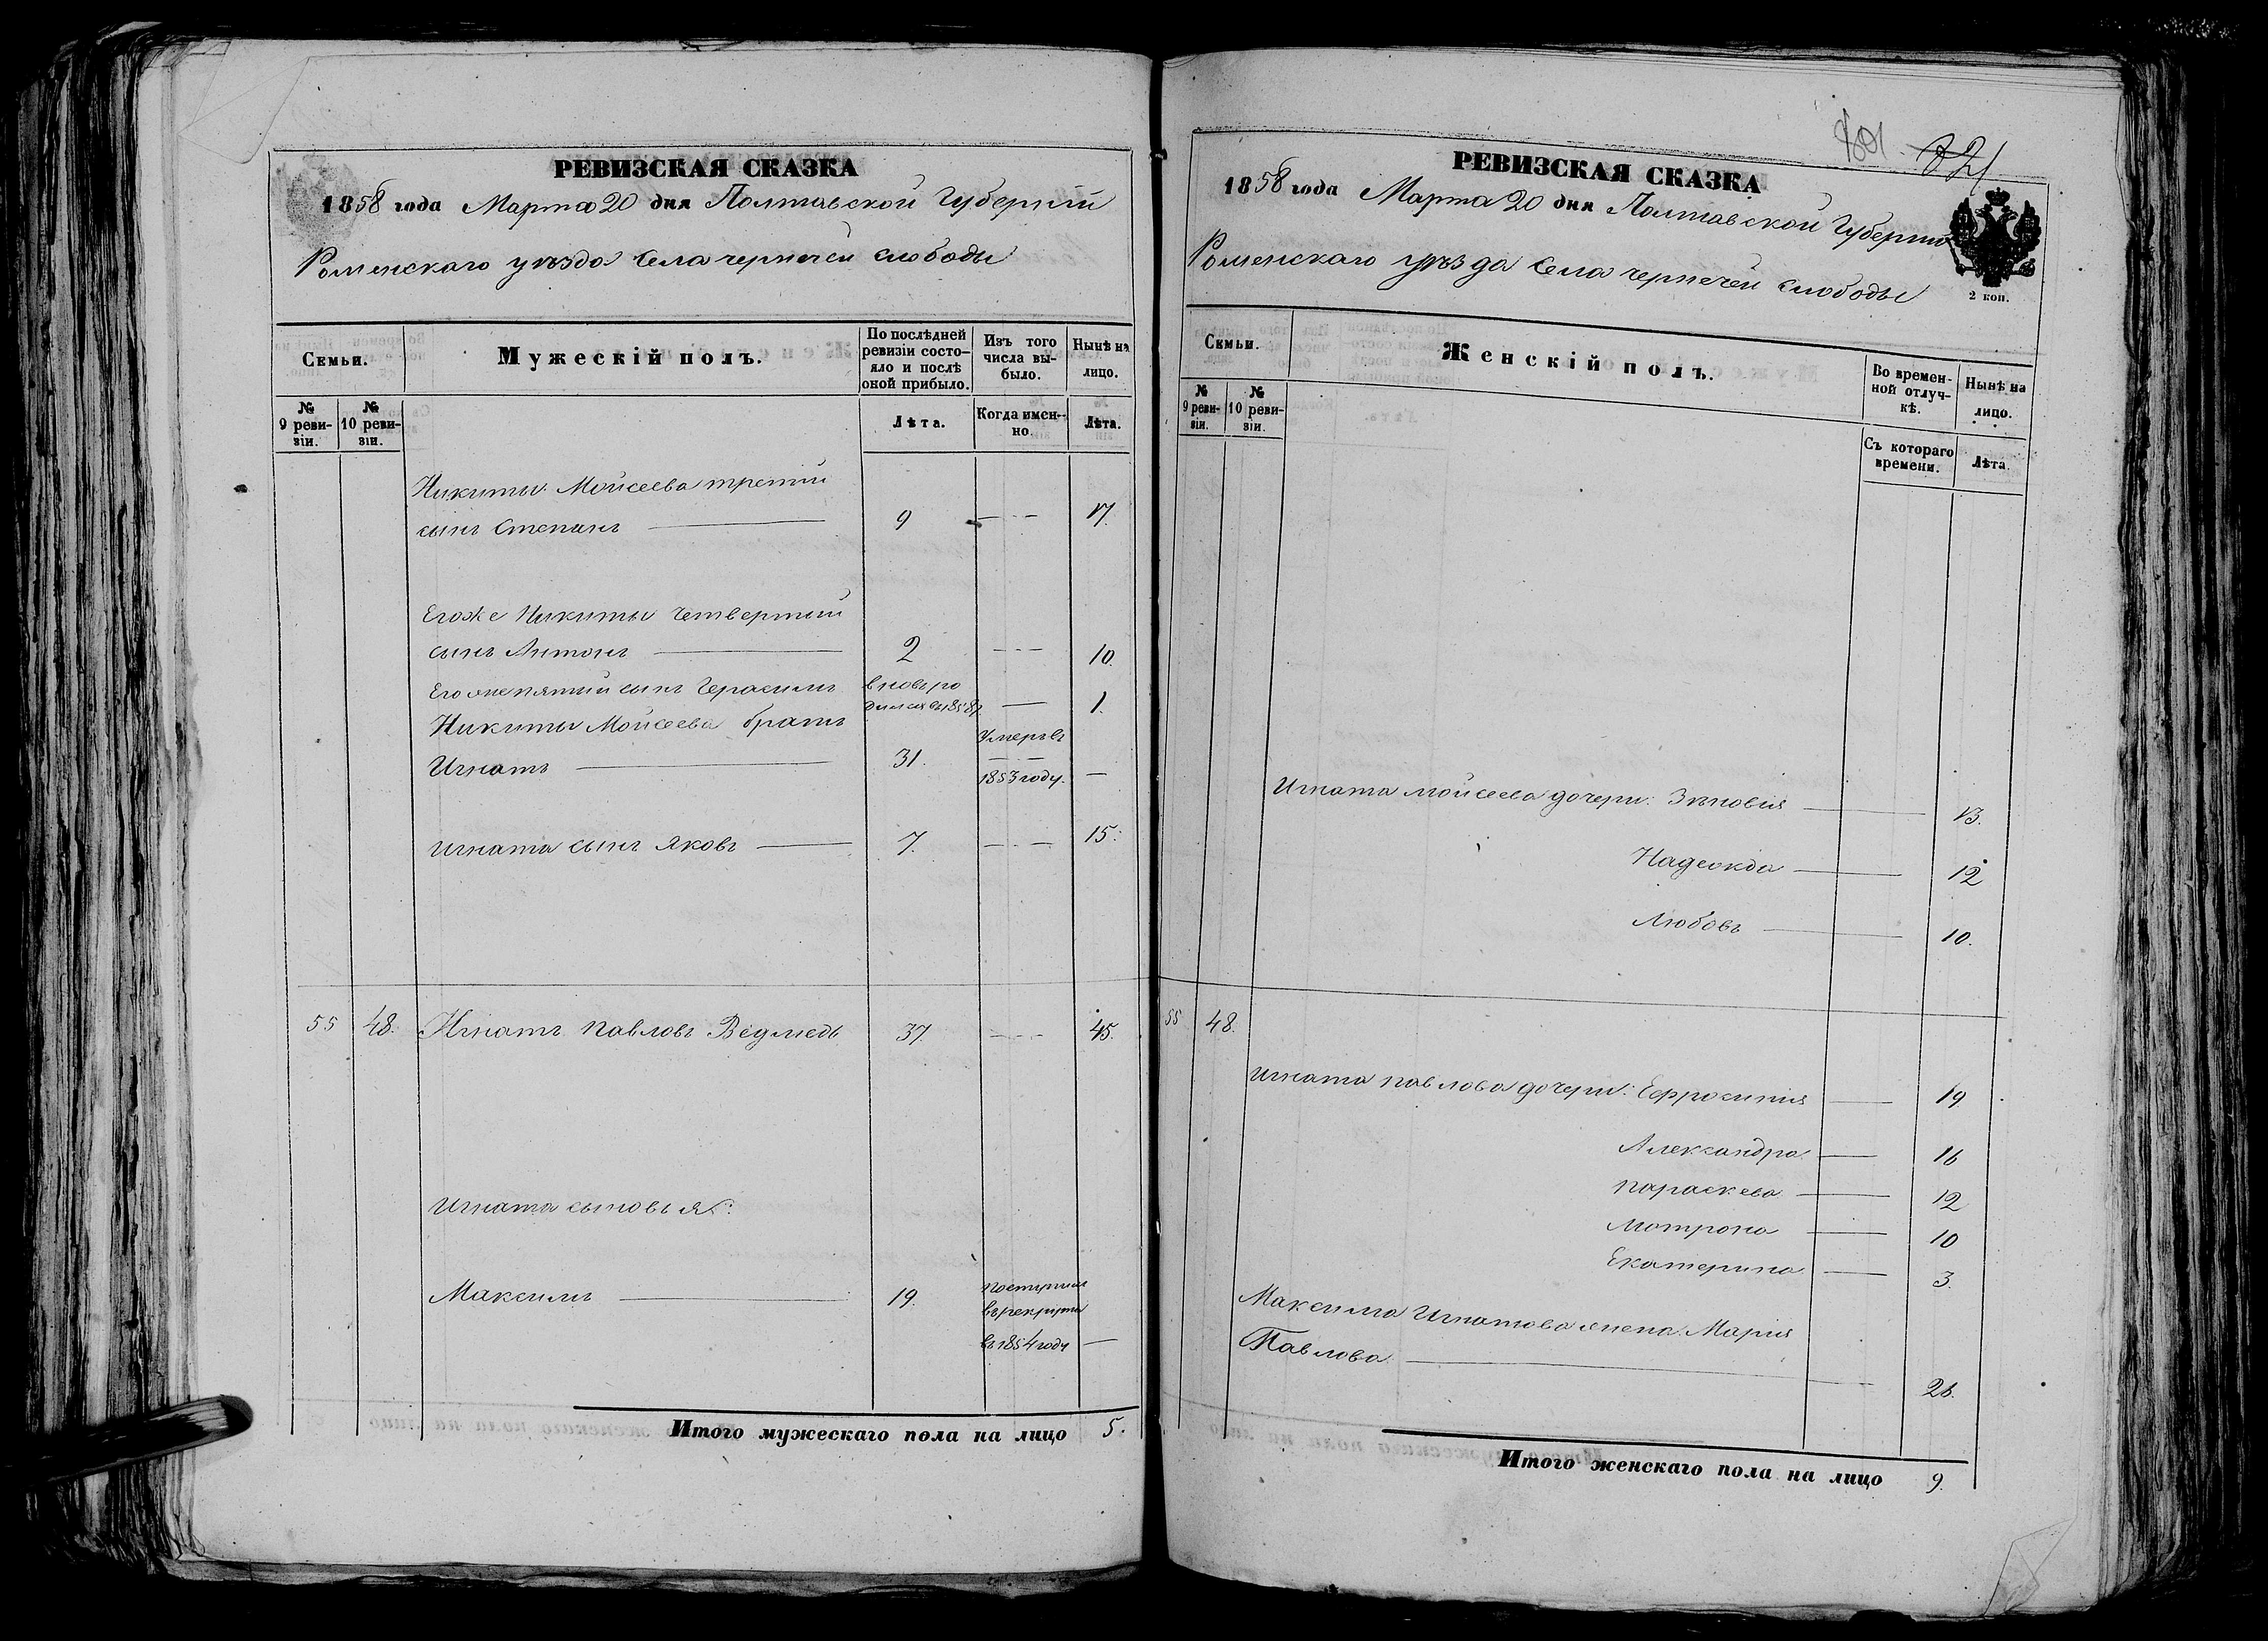 РЕВИЗСКАЯ СКАЗКА
1858 года Марта 20 дня Полтавской Губернии
Роменскаго уѣзда Села чернечей слободы
Семьи.
Мужескій полъ.
По послѣдней ревизіи состо-
яло и послѣ
оной прибыло.
Изъ того
числа вы-
было.
Нынѣ на
лицо.
№
9 реви-
зіи.
№
10 реви-
зіи.
Лѣта.
Когда имен-
но.
Лѣта.
Никиты Мойсеева третий
сынъ Степанъ 9 17.
Егоже Никиты Четвертый
сынъ Антонъ 2 10.
Егоже пятий сынъ Герасимъ вновь ро 1.
Никиты Мойсеева братъ
Умеръ въ
Игнатъ 31. 1853 году.
Игната сынъ Яковъ 7. 15.
55 48. Игнатъ Павловъ Ведмедь 37. 45.
Игната сыновья:
Максимъ 19.
въ рекруты
въ 1854 году
Итого мужескаго пола на лицо 5.
801 821
РЕВИЗСКАЯ СКАЗКА
1858 года Марта 20 дня Полтавской Губернии
Роменскаго уѣзда Села чернечей слободы
2 коп.
Семьи.
Женскій полъ.
Во времен-
ной отлуч-
кѣ.
Нынѣ на
лицо.
№
9 реви-
зіи.
№
10 реви-
зіи.
Съ котораго
времени.
Лѣта.
Игната Мойсеева дочери: Зѣновія 13.
Надежда 12
Любовъ 10.
55 48.
Игната Павлова дочери: Ефросинія 19
Александра 16
Параскева 12
Мотрона 10
Екатерина 3.
Максима Игнатова жена Марія
Павлова 26.
Итого женскаго пола на лицо 9.